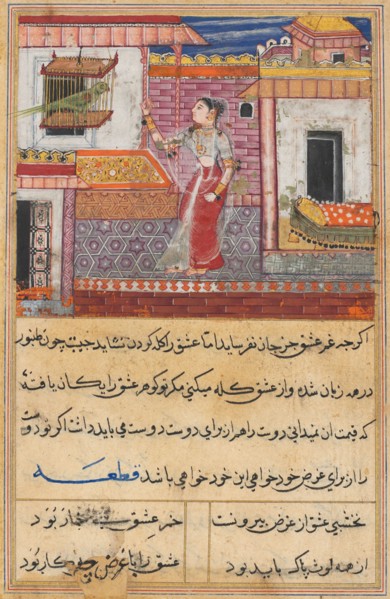 اگرچه غم عشق جز جان نفرساید اما عشق را کله کردن نشاید چیست چون طنبور
در همه زبان شده و از عشق کله میکنی مکر تو کوهر عشق رایکان یافته
که قیمت ان نمیدانی دوست را هم از برای دوست دوست می باید داشت اکر تو دوست
را از برای غرض خود خواهی این خود خواهی باشد قطعه
نخشبی عشق از غرض بیرونست خمر عشق بود
از همه لوث پاک باید بود عشق را با غرض چه کار بود